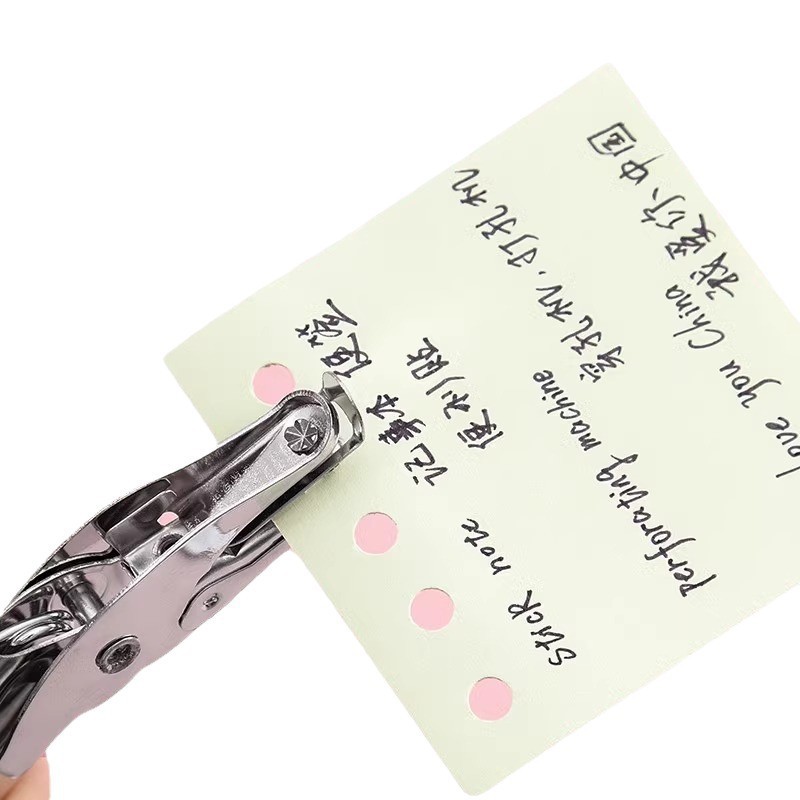 Stick note 记事本 便签
便利贴
Perforating machine 穿孔机. 打孔机
love you China 我爱你中国